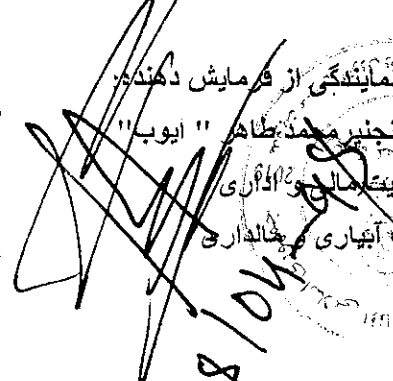 نمایندگی از فرمایش دهنده:
نجنیر محمد طاهر " ایوب"
یت مالی و اداری
آبیاری و مالداری
8/04/98